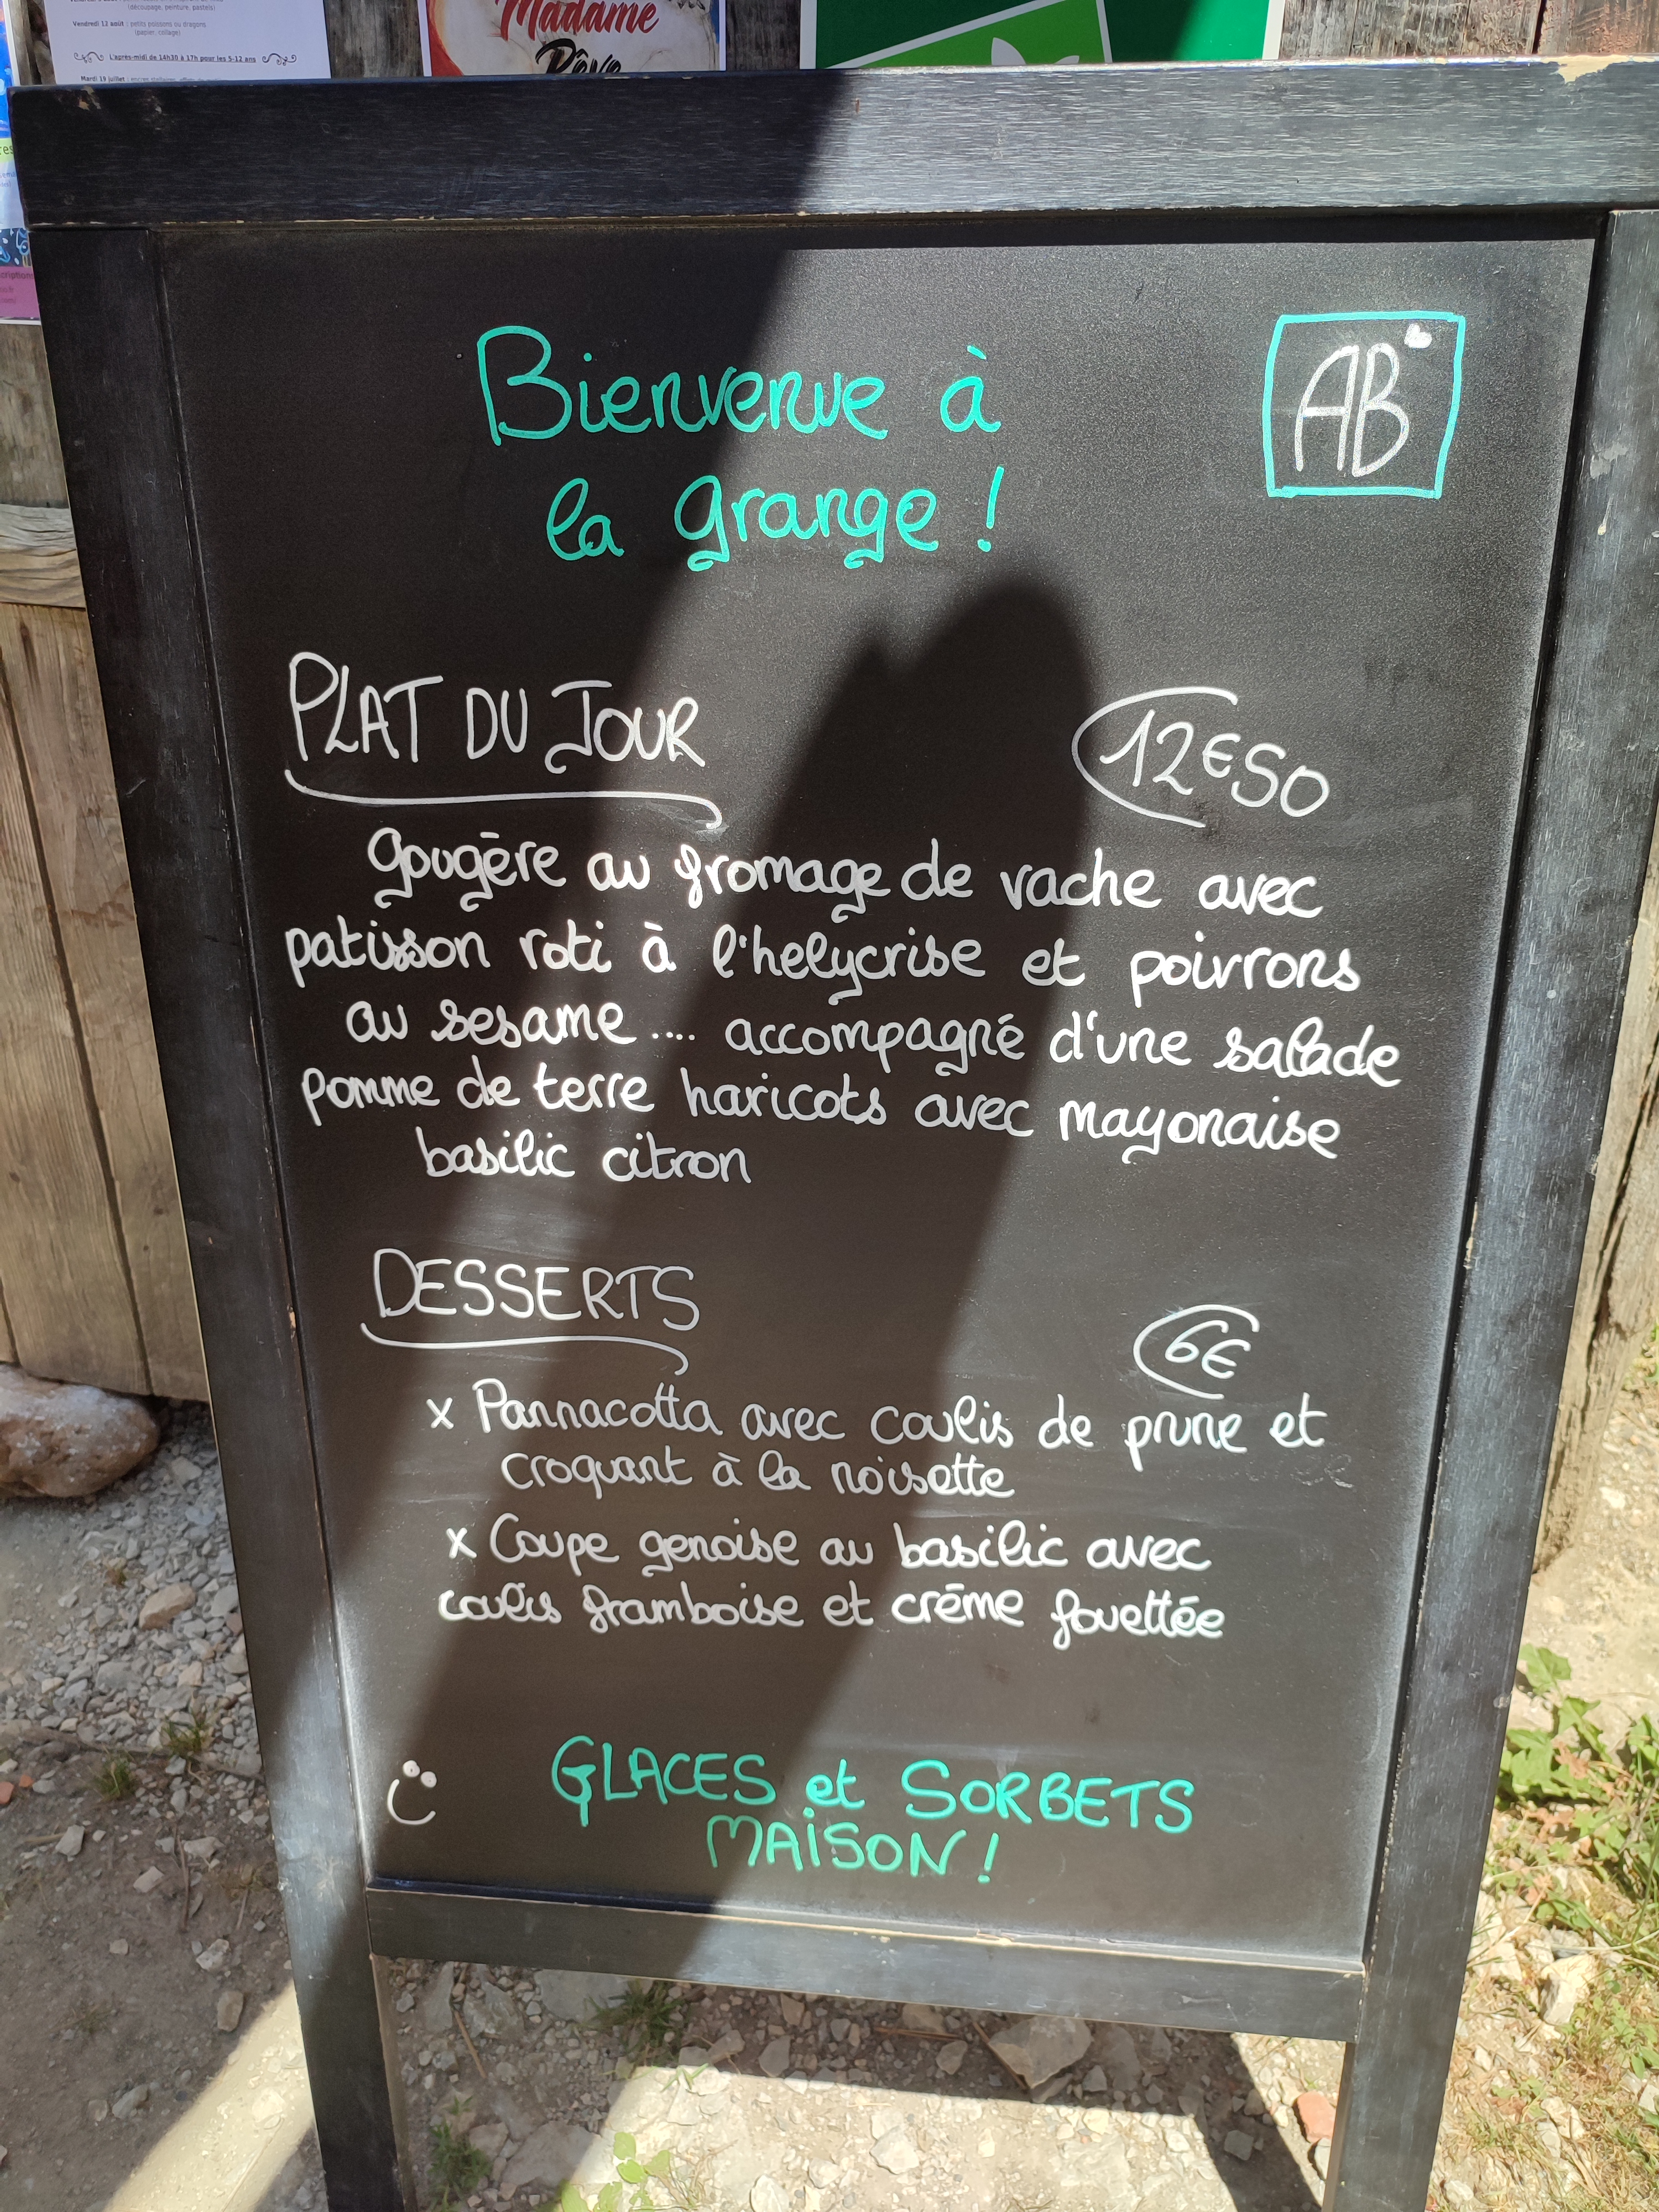 (découpage, peinture, pastels)
Vendredi 12 août : petits poissons ou dragons
(papier, collage)
L'après-midi de 14h30 à 17h pour les 5-12 ans
Mardi 19 juillet :
Madame
Rêve
Bienvenue à
la grange !
AB
PLAT DU JOUR
12€50
gougère au fromage de vache avec
patisson roti à l'helycrise et poivrons
au sesame .... accompagné d'une salade
pomme de terre haricots avec mayonaise
basilic citron
DESSERTS
6€
x Pannacotta avec coulis de prune et
croquant à la noisette
x Coupe genoise au basilic avec
coulis framboise et crème fouettée
GLACES et SORBETS
MAISON !